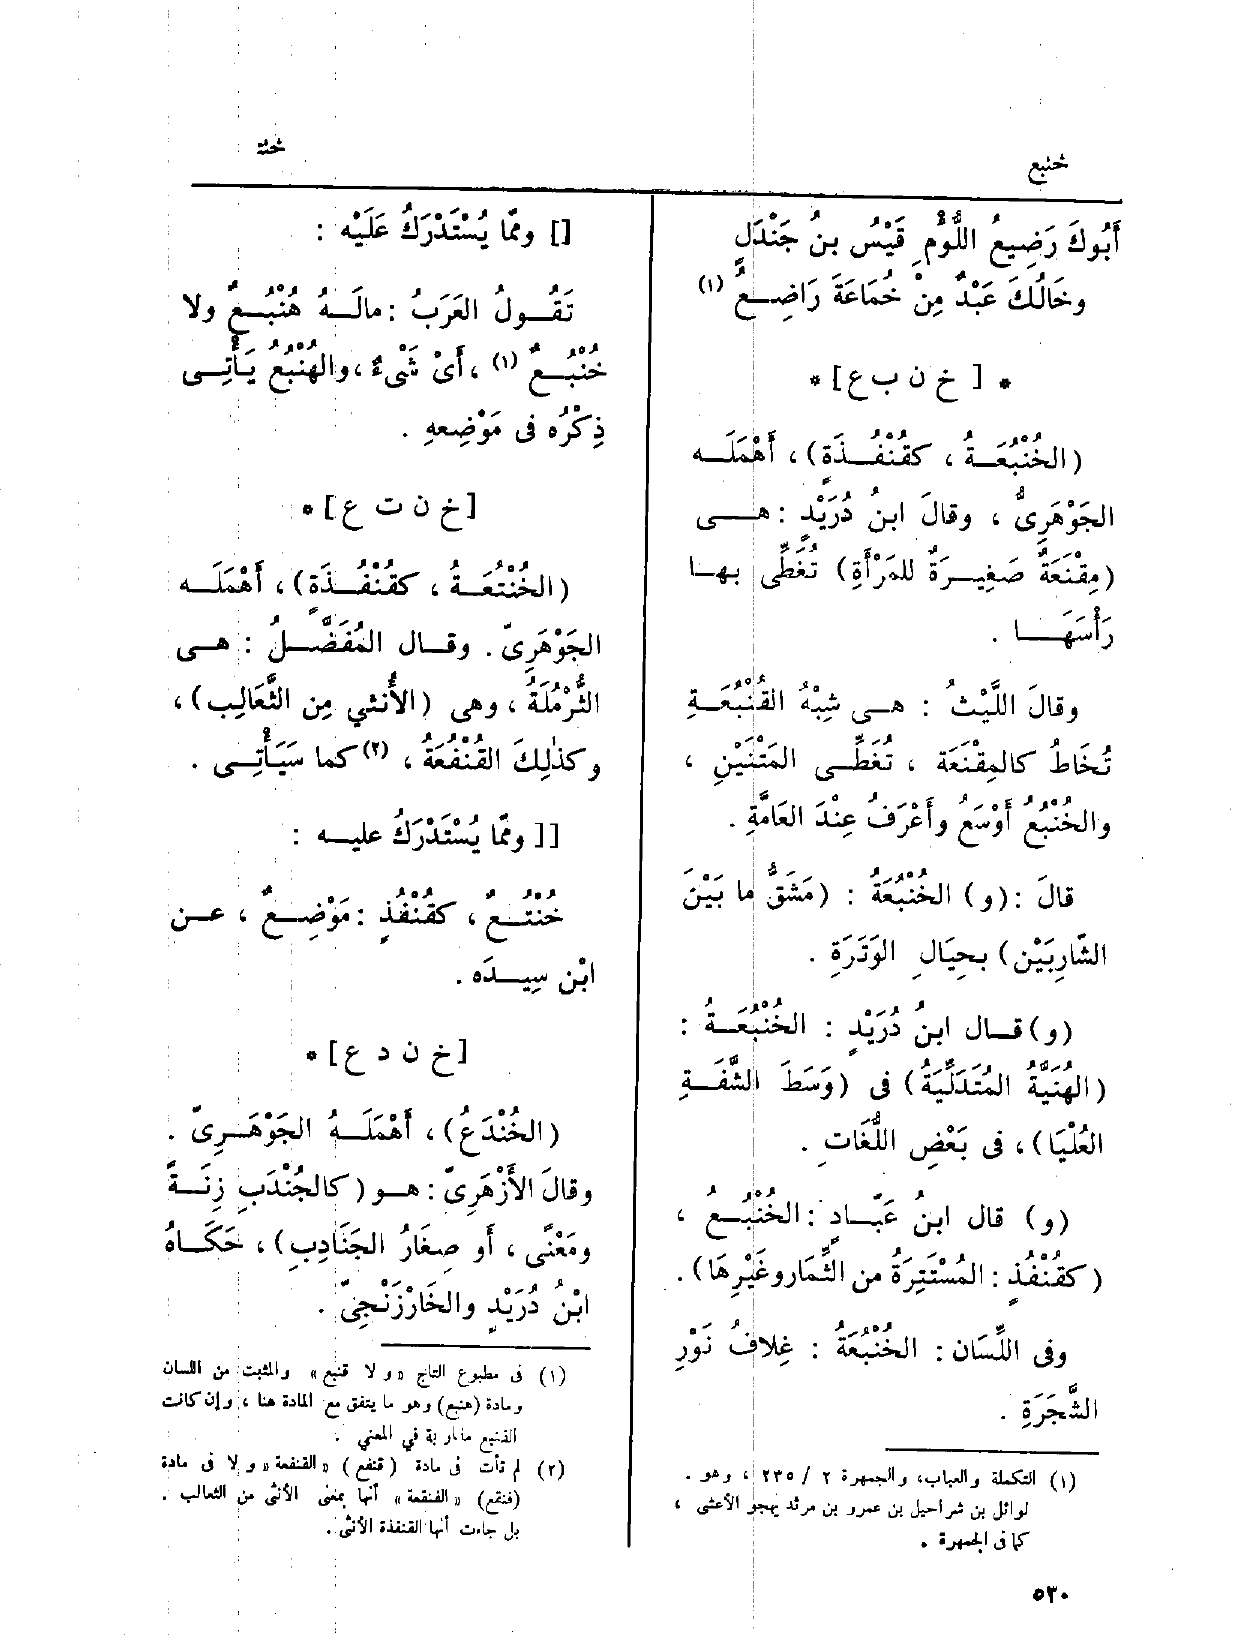 خنبع
أَبُوكَ رَضِيعُ اللُّؤْمِ قَيْسُ بنُ جَنْدَلٍ
وخَالُكَ عَبْدٌ مِنْ خُمَاعَةَ رَاضِعُ (١)
* [ خ ن ب ع ] *
(الخُنْبُعَةُ ، كقُنْفُذَةٍ) ، أَهْمَلَه
الجَوْهَرِيُّ ، وقالَ ابنُ دُرَيْدٍ : هى
(مِقْنَعَةٌ صَغِيرَةٌ للمَرْأَةِ) تُغَطِّى بها
رَأْسَهَا .
وقالَ اللَّيْثُ : هى شِبْهُ القُنْبُعَةِ
تُخَاطُ كالمِقْنَعَة ، تُغَطِّى المَتْنَيْنِ ،
والخُنْبُعُ أَوْسَعُ وأَعْرَفُ عِنْدَ العَامَّةِ .
قالَ : (و) الخُنْبُعَةُ : (مَشَقُّ ما بَيْنَ
الشَّارِبَيْن) بحِيَالِ الوَتَرَةِ .
(و) قال ابنُ دُرَيْدٍ : الخُنْبُعَةُ :
(الهُنَيَّةُ المُتَدَلِّيَةُ) فى (وَسَطَ الشَّفَةِ
العُلْيَا) ، فى بَعْضِ اللُّغَاتِ .
(و) قال ابنُ عَبّادٍ : الخُنْبُعُ ،
(كقُنْفُذٍ : المُسْتَتِرَةُ من الثِّمَار وغَيْرِهَا) .
وفى اللِّسَان : الخُنْبُعَةُ : غِلافُ نَوْرِ
الشَّجَرَةِ .
(١) التكملة والعباب، والجمهرة ٢ / ٢٣٥ ، وهو .
لوائل بن شراحيل بن عمرو بن مرثد يهجو الأعشى ،
كما فى الجمهرة .
٥٣٠
[] وممّا يُسْتَدْرَكُ عَلَيْه :
تَقُولُ العَرَبُ : مالَهُ هُنْبُعٌ ولا
خُنْبُعٌ (١) ، أَىْ شَىْءٌ ، والهُنْبُعُ يَأْتِى
ذِكْرُه فى مَوْضِعِهِ .
[خ ن ت ع] *
(الخُنْتُعَةُ ، كقُنْفُذَة) ، أَهْمَلَه
الجَوْهَرِىّ . وقال المُفَضَّلُ : هى
الثُّرْمُلَةُ ، وهى (الأُنثي مِن الثَّعَالِب) ،
وكذٰلِكَ القُنْفُعَةُ ، (٢) كما سَيَأْتِى .
[] وممّا يُسْتَدْرَكُ عليه :
خُنْتُعٌ ، كقُنْفُذٍ : مَوْضِعٌ ، عن
ابْن سِيدَه .
[خ ن د ع] *
(الخُنْدَعُ) ، أَهْمَلَهُ الجَوْهَرِىّ .
وقالَ الأَزْهَرِىّ : هو (كالجُنْدَبِ زِنَةً
ومَعْنًى ، أو صِغَارُ الجَنَادِبِ) ، حَكَاهُ
ابْنُ دُرَيْدٍ والخَارْزَنْجِىّ .
(١) فى مطبوع التاج «ولا قنبع» والمثبت من اللسان
ومادة (هنبع) وهو ما يتفق مع المادة هنا ، وإن كانت
القنبع مقاربة في المعني .
(٢) لم تأت فى مادة (قنفع) «القنفعة» ولا فى مادة
(فنقع) «الفنقعة» أنها بمعنى الأنثى من الثعالب .
بل جاءت أنها القنفذة الأنثى .